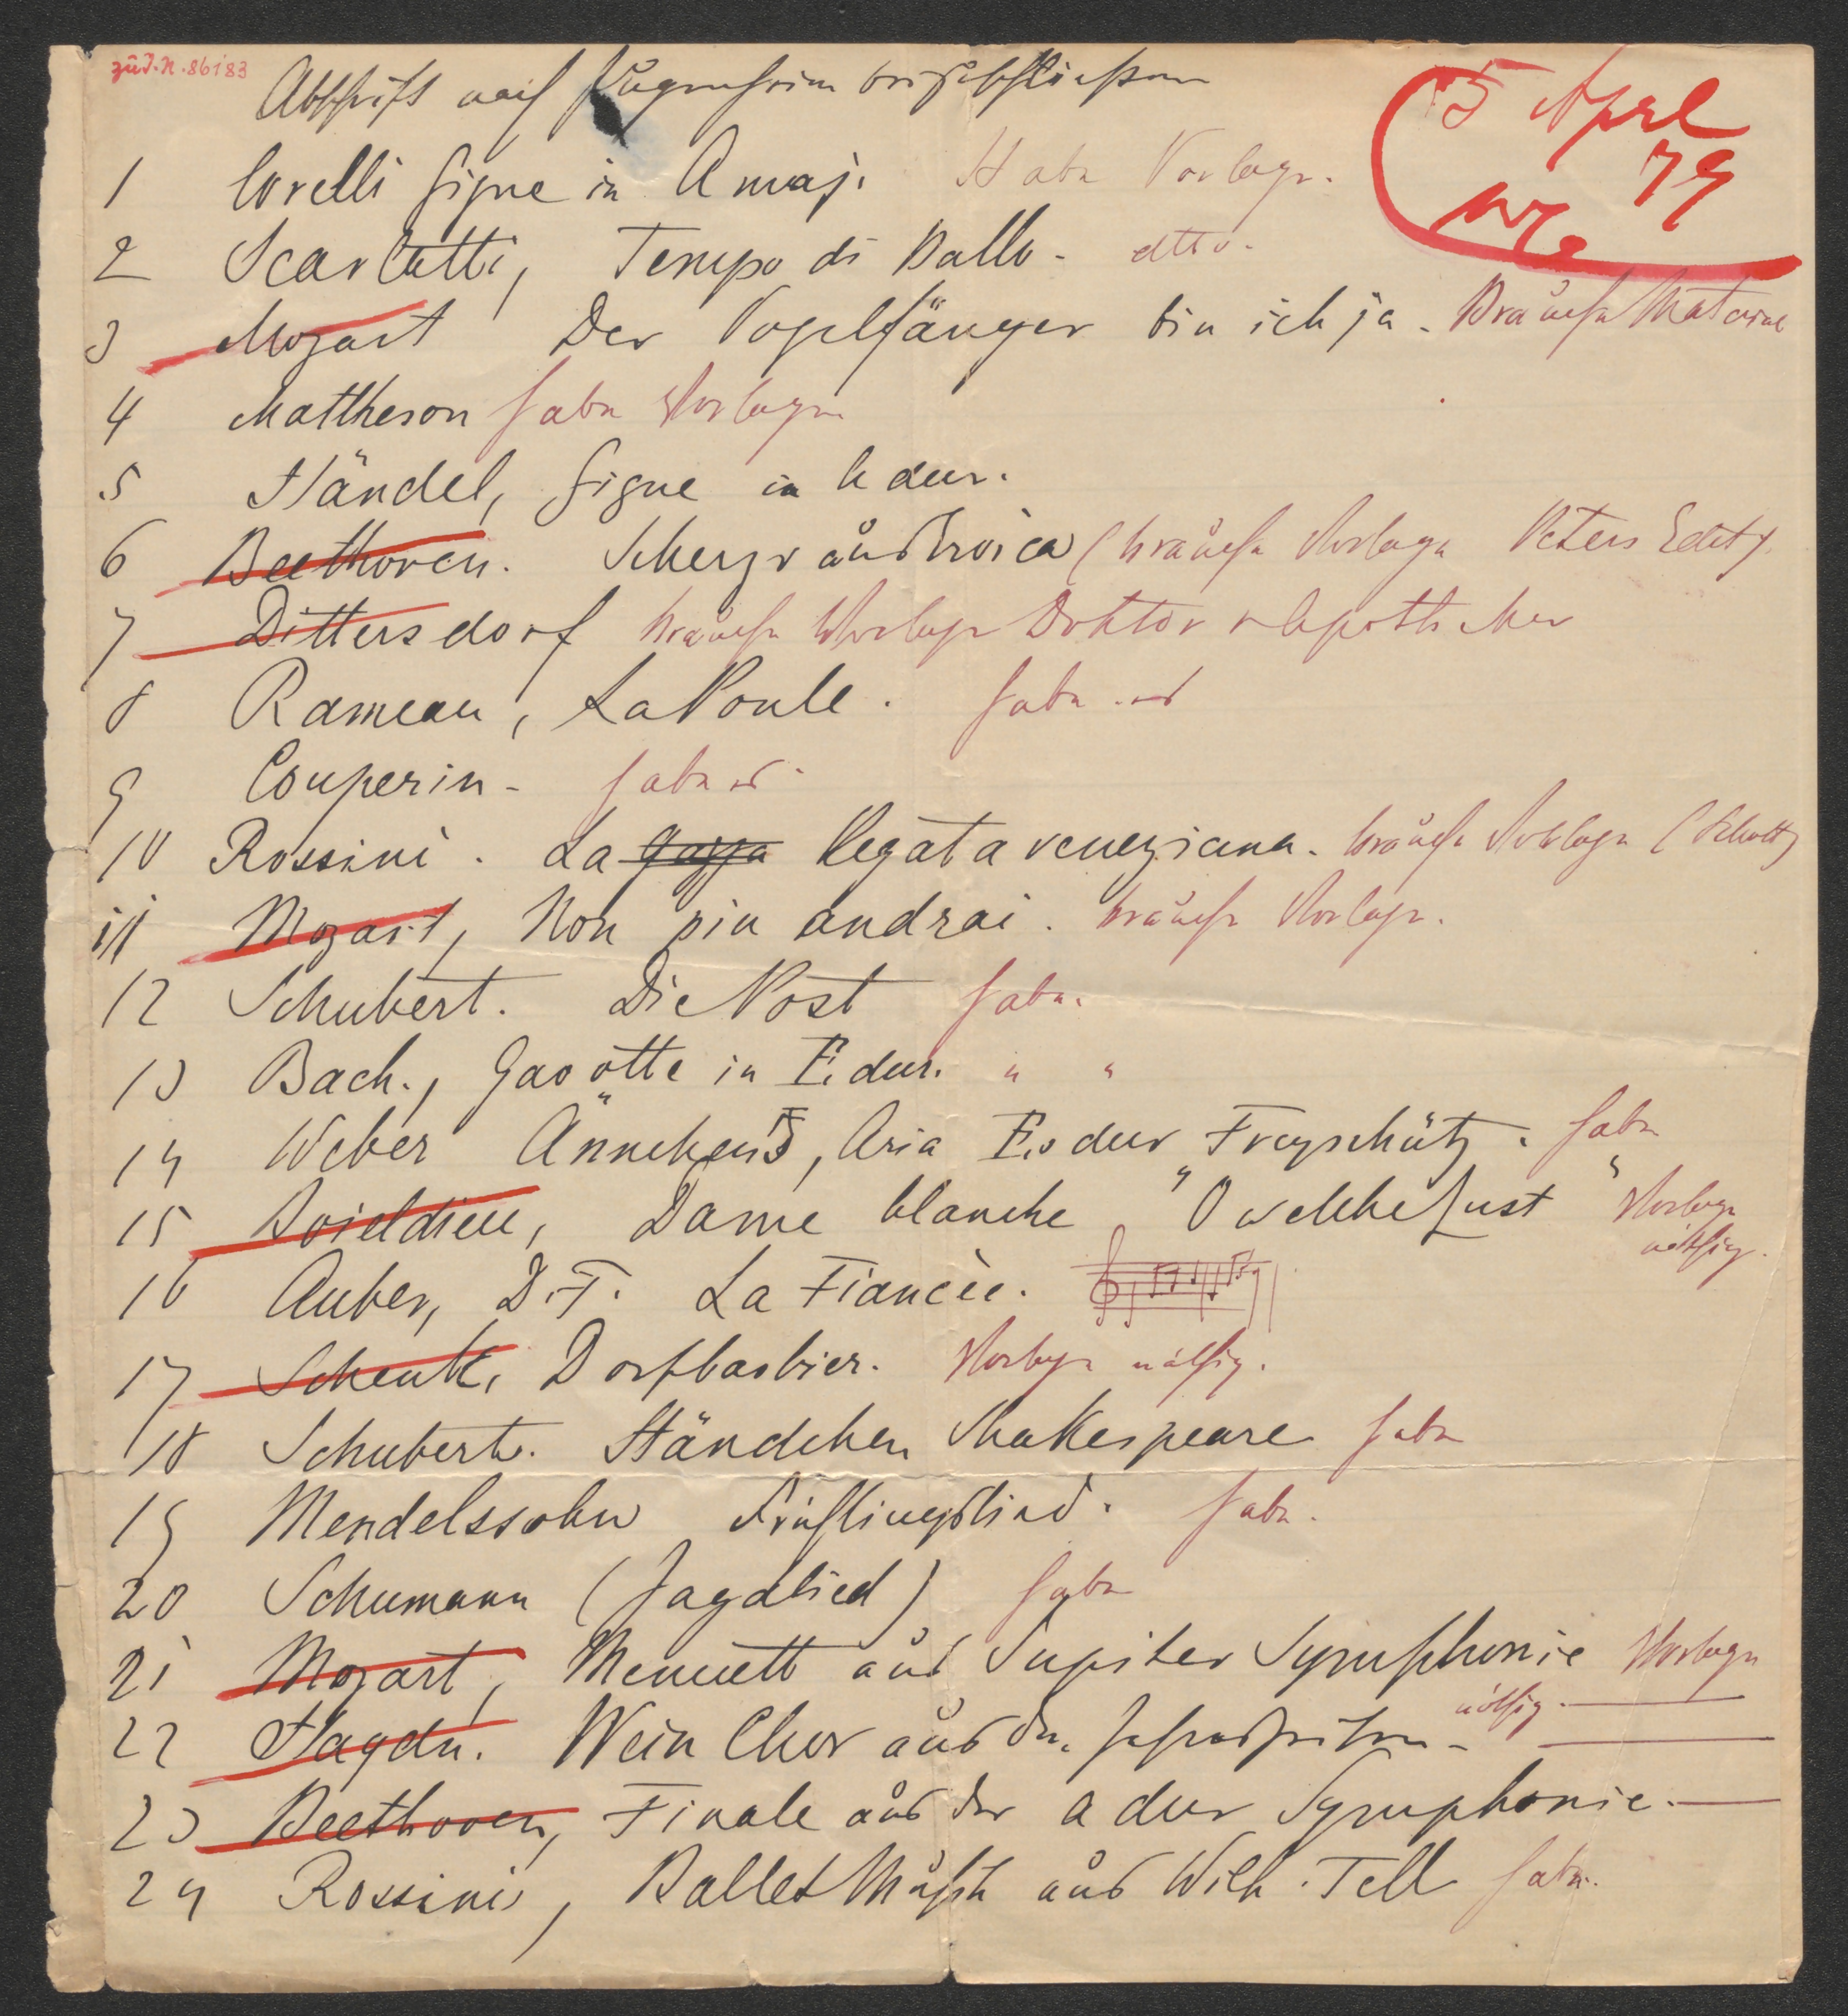 zu I.N. 86183
Abschrift nach beizuschließen
5 April
79
1 Corelli Gigue in A maj. Habe Vorlage.
2 Scarlatti, Tempo di Ballo - dtto.
3 Mozart Der Vogelfänger bin ich ja - Brauche Material
4 Mattheson habe Vorlage
5 Händel, Gigue in
6 Beethoven. Scherzo aus Eroica (brauche Vorlage Peters Edit)
7 Dittersdorf brauche Vorlage Doktor u Apotheker
8 Rameau, La Poule. habe
9 Couperin - habe
10 Rossini. La Gazza Regata veneziana. brauche Vorlage (Schott)
11 Mozart, Non piu andrai. brauche Vorlage.
12 Schubert. Die Post habe.
13 Bach., Gavotte in E dur. " "
14 Weber Ännchens, Aria Es dur "Freyschütz". habe
15 Boieldieu, Dame blanche, "O welche Lust" Vorlage
nöthig.
16 Auber, D. F. La Fiancèe.
17 Schenk, Dorfbarbier. Vorlage nöthig.
18 Schubert. Ständchen Shakespeare habe
19 Mendelssohn Frühlingslied. habe.
20 Schumann (Jagdlied) habe
21 Mozart, Menuett aus Jupiter Symphonie Vorlage
nöthig.
22 Haydn. Wein Chor aus den Jahreszeiten -
23 Beethoven, Finale aus der a dur Symphonie. -
24 Rossini, Ballet Musik aus Wilh. Tell habe.